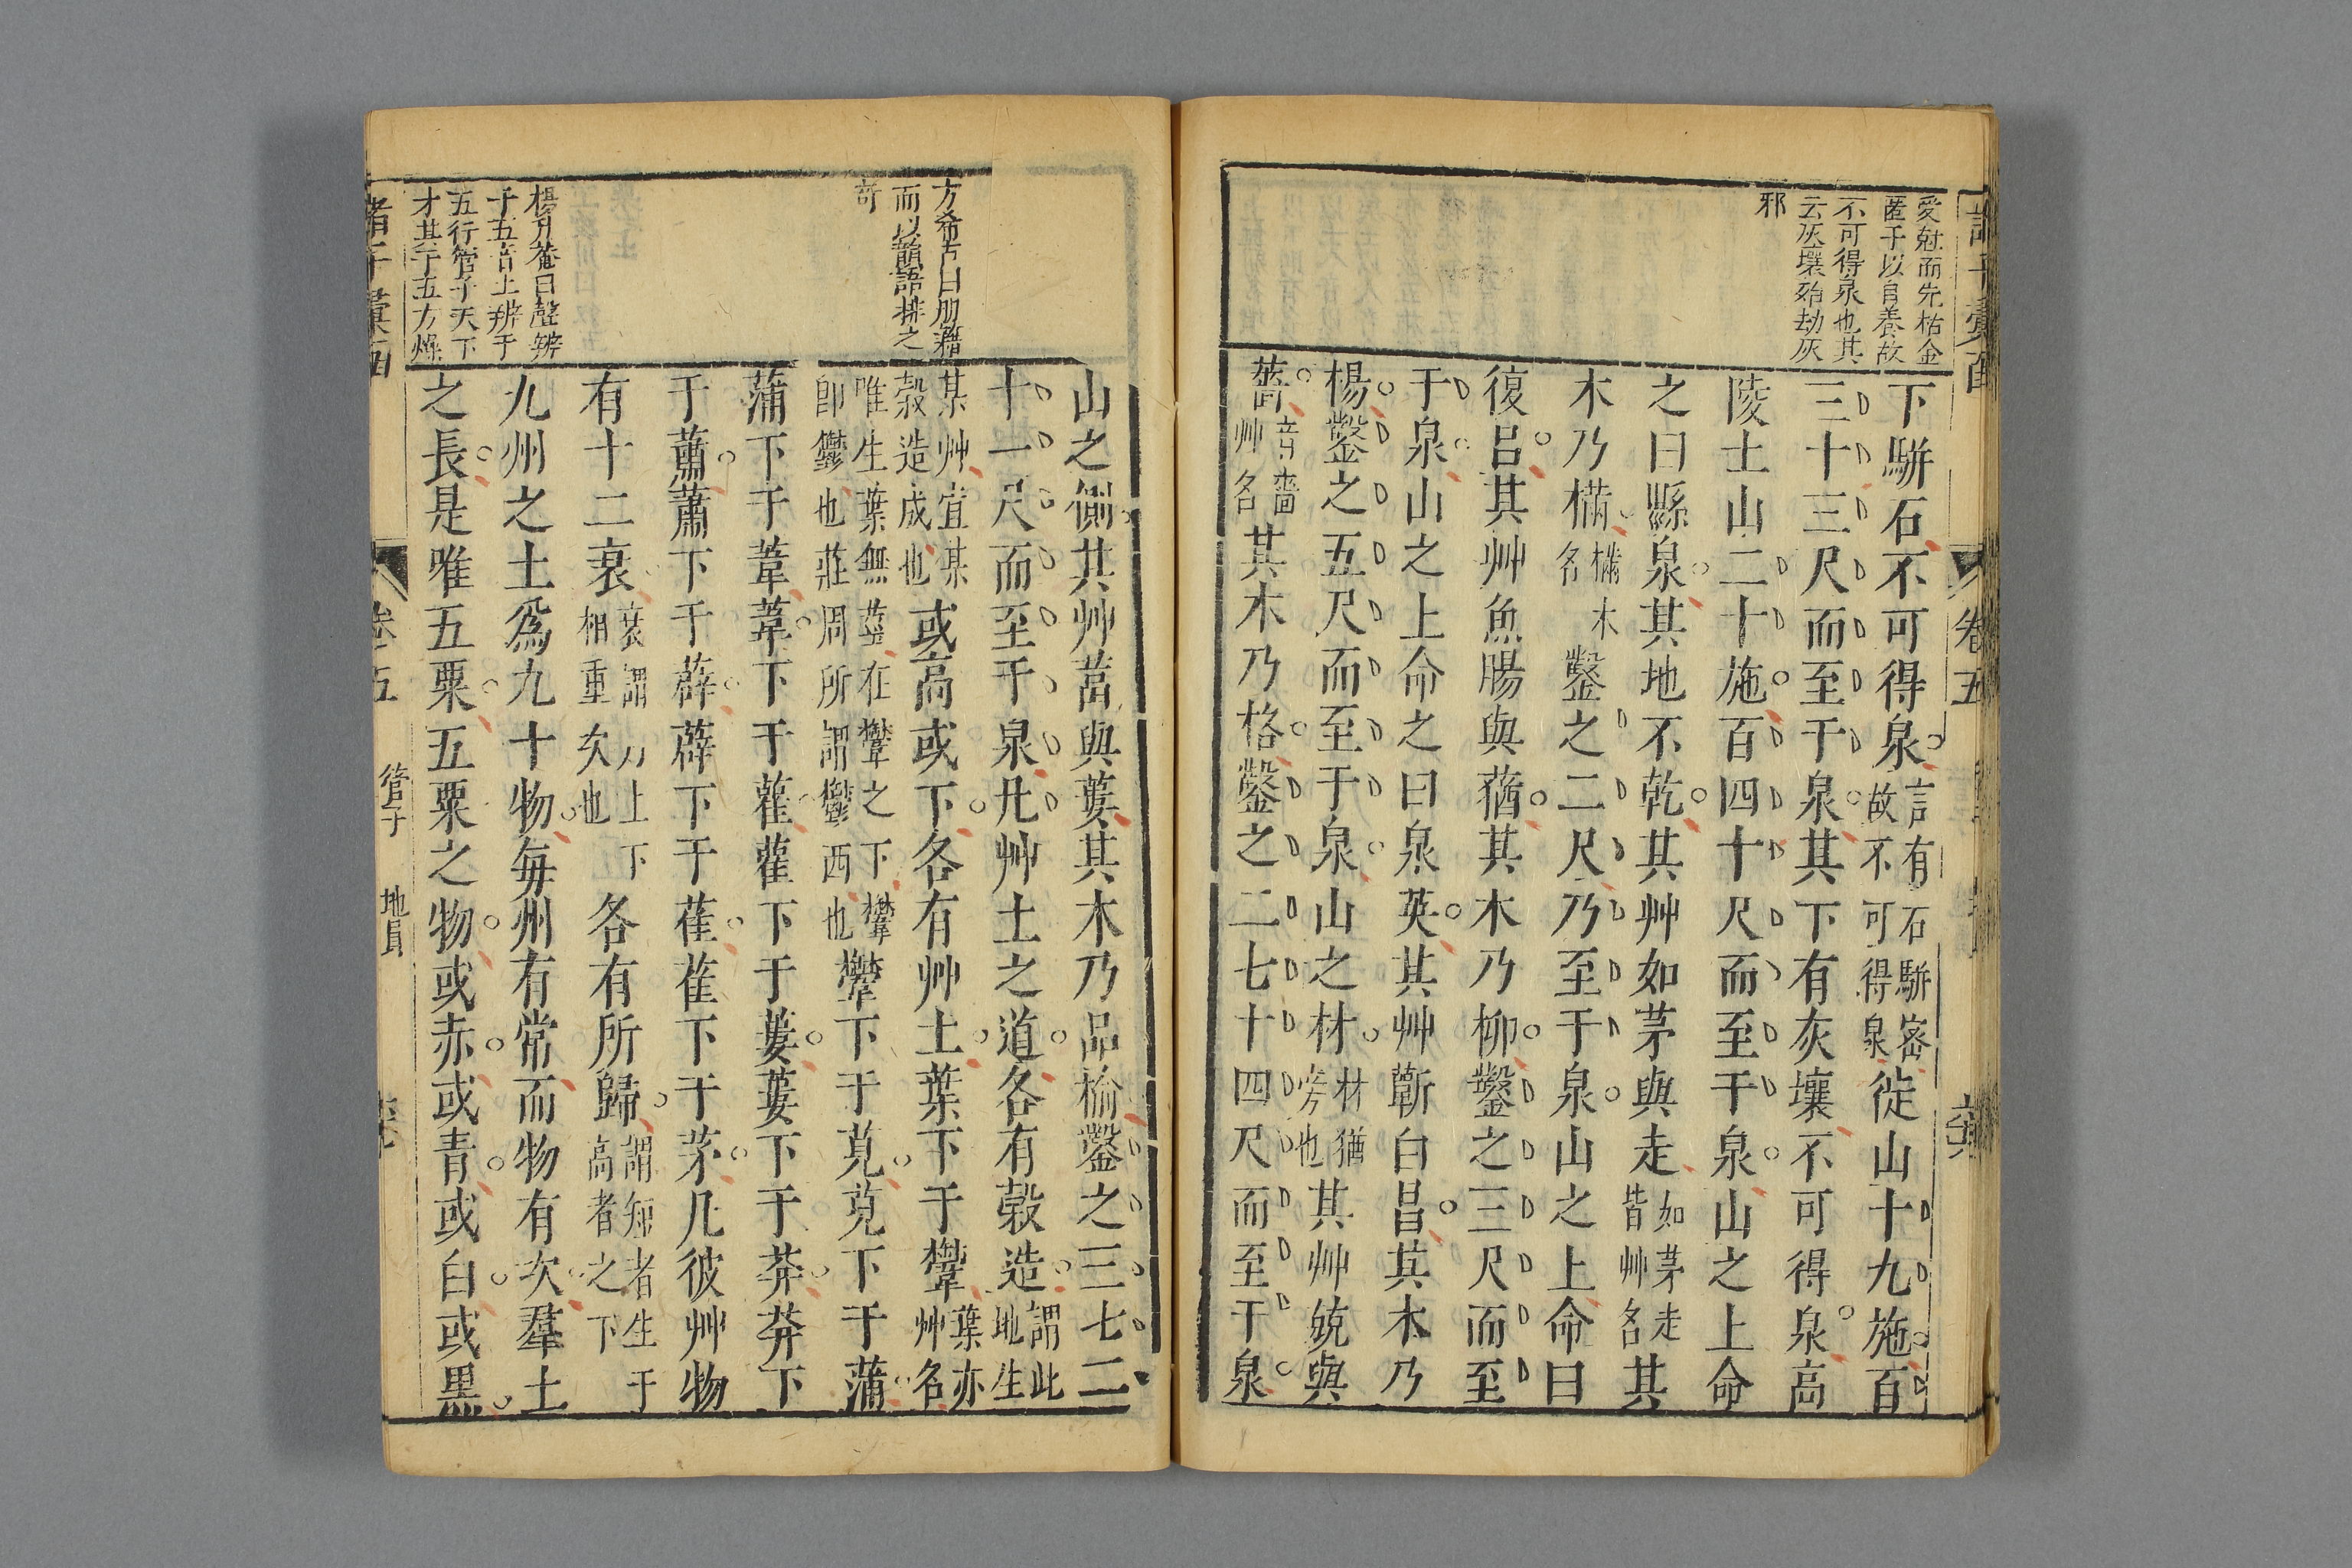 愛尅而先枯金
匿于以自養故
不可得泉也其
云灰壤殆劫灰
邪
下駢石不可得泉言有石駢密故不可得泉徙山十九施百
三十三尺而至于泉其下有灰壤不可得泉高
陵土山二十施百四十尺而至于泉山之上命
之曰縣泉其地不乾其艸如茅與走如茅走皆艸名其
木乃樠樠木名鑿之二尺乃至于泉山之上命曰
復呂其艸魚腸與蕕其木乃柳鑿之三尺而至
于泉山之上命之曰泉英其艸蘄白昌其木乃
楊鑿之五尺而至于泉山之材材猶旁也其艸兢與
薔音嗇艸名其木乃格鑿之二七十四尺而至于泉
卷五
方希古曰朋籍
而以韻語排之
奇
楊升菴曰聲辨
于五音土辨于
五行管子天下
才其于五方燥
山之側其艸葍與蔞其木乃品榆鑿之三七二
十一尺而至于泉凡艸土之道各有穀造謂此地生
某艸宜某穀造成也或高或下各有艸土葉下于䕯葉亦艸名
唯生葉無莖在䕯之下䕯卽鬱也莊周所謂鬱西也䕯下于莧莧下于蒲
蒲下于葦葦下于雚雚下于蔞蔞下于荓荓下
于蕭蕭下于薜薜下于萑萑下于茅凡彼艸物
有十二衰衰謂刀上下相重次也各有所歸謂短者生于高者之下
九州之土爲九十物每州有常而物有次羣土
之長是唯五粟五粟之物或赤或青或白或黑
卷五
管子
地員